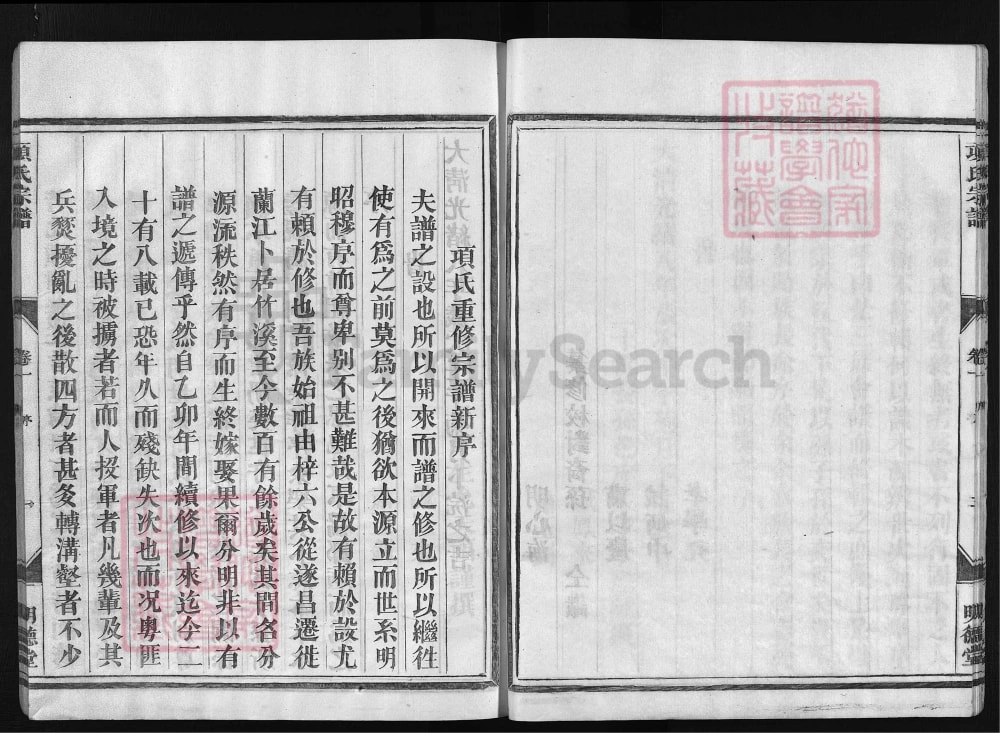 項氏宗譜
卷一
明德堂
項氏重修宗譜新序
夫譜之設也所以開來而譜之修也所以繼徃
使有為之前莫為之後猶欲本源立而世系明
昭穆序而尊卑别不甚難哉是故有賴於設尤
有賴於修也吾族始祖由梓六公從遂昌遷徙
蘭江卜居竹溪至今數百有餘歲矣其間名分
源流秩然有序而生終嫁娶果爾分明非以有
譜之遞傳乎然自乙卯年間續修以來迄今二
十有八載已恐年久而殘缺失次也而况粵匪
入境之時被擄者若而人投軍者凡幾輩及其
兵燹擾亂之後散四方者甚多轉溝壑者不少
項氏宗譜
卷一
序
一
明德堂
MySearch